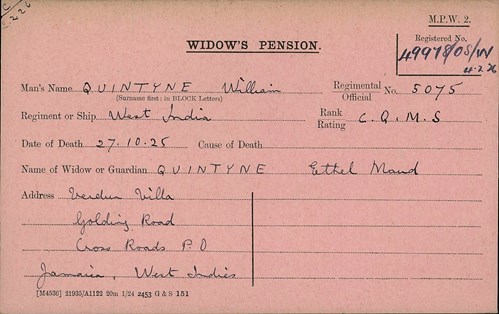 M.P.W. 2.
WIDOW'S PENSION.
Registered No.
49978/08/W
4.2.26
Man's Name QUINTYNE William
(Surname first: in BLOCK Letters)
Regimental Official No. 5075
Regiment or Ship West India
Rank Rating C.Q.M.S
Date of Death 27.10.25 Cause of Death
Name of Widow or Guardian QUINTYNE Ethel Maud
Address Verdun Villa
Golding Road
Cross Roads P.O
Jamaica, West Indies
[M4536] 21935/A1122 20m 1/24 2453 G & S 151